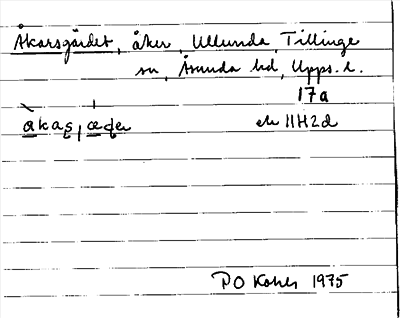 Åkarsgärdet, åker, Ullunda, Tillinge
sn, Åsunda hd, Upps. l.
17a
ek 11H2d
PO Koher 1975